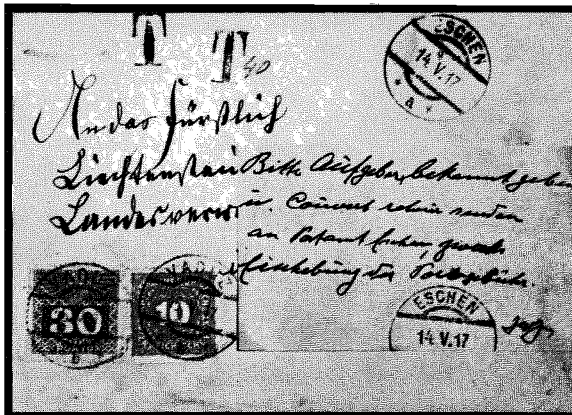 T T 40
ESCHEN
14.V.17
a
An das Fürstlich
Liechtenstein
Landesverw
Bitte Aufgeber bekannt geben
u. Couvert retour senden
an Postamt Eschen, zwecks
Einhebung der Portogebühr.
30
10
VAD
ESCHEN
14.V.17